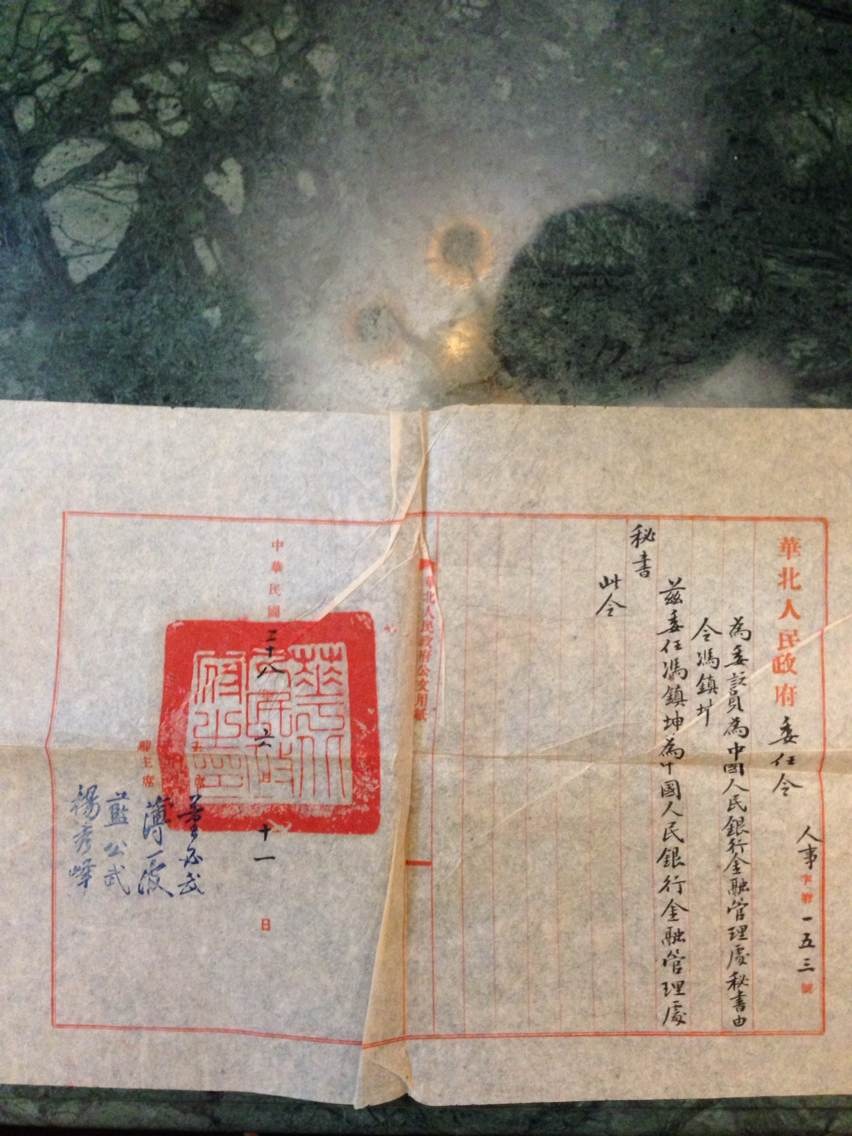 華北人民政府 委任令 人事字第一五三號
為委該員為中國人民銀行金融管理處秘書由
令馮鎮坤
茲委任馮鎮坤為中國人民銀行金融管理處
秘書
此令
華北人民政府公文用紙
中華民國三十八年六月十一日
華北人民政府之印
主席 董必武
副主席 薄一波
藍公武
楊秀峰